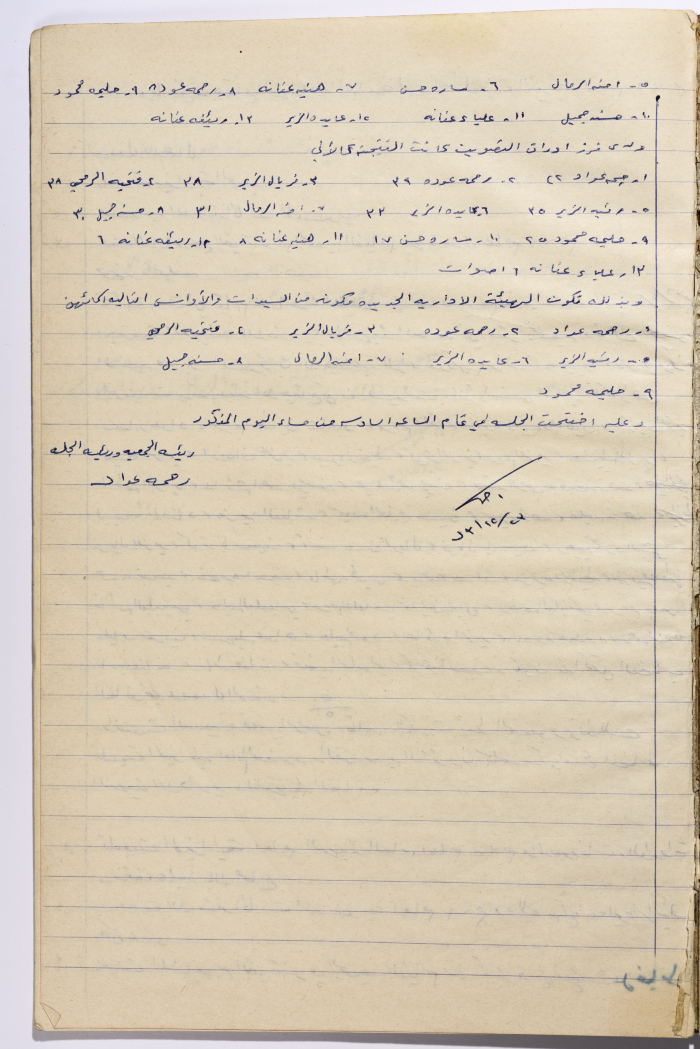 ٥- امنه الرمال ٦- ساره حسن ٧- هنيه عنانه ٨- رحمه عوده ٩- حليمه محمود
١٠- حسنه جميل ١١- علياء عنانه ١٢- عايده الزير ١٣- رئيفه عنانه
ولدى فرز اوراق التصويت كانت النتيجة كالآتي
١- رحمه عواد ٤٢ ٢- رحمه عوده ٣٩ ٣- فريال الزير ٣٨ ٤- فتحيه الرمحي ٣٨
٥- رشيده الزير ٣٥ ٦- عايده الزير ٣٣ ٧- امنه الرمال ٣١ ٨- حسنه جميل ٣٠
٩- حليمه محمود ٢٥ ١٠- ساره حسن ١٧ ١١- هنيه عنانه ٨ ١٢- رئيفه عنانه ٦
١٣- علياء عنانه ٦ اصوات
وبذلك تكون الهيئة الاداريه الجديده مكونه من السيدات والأوانس التاليه اسمائهن
١- رحمه عواد ٢- رحمه عوده ٣- فريال الزير ٤- فتحيه الرمحي
٥- الزير ٦- عايده الزير ٧- امنه الرمال ٨- حسنه جميل
٩- حليمه محمود
وعليه اختتمت الجلسه في تمام الساعه السادسه من مساء اليوم المذكور
رئيسة الجمعيه ورئيسة الجلسه
رحمه عواد